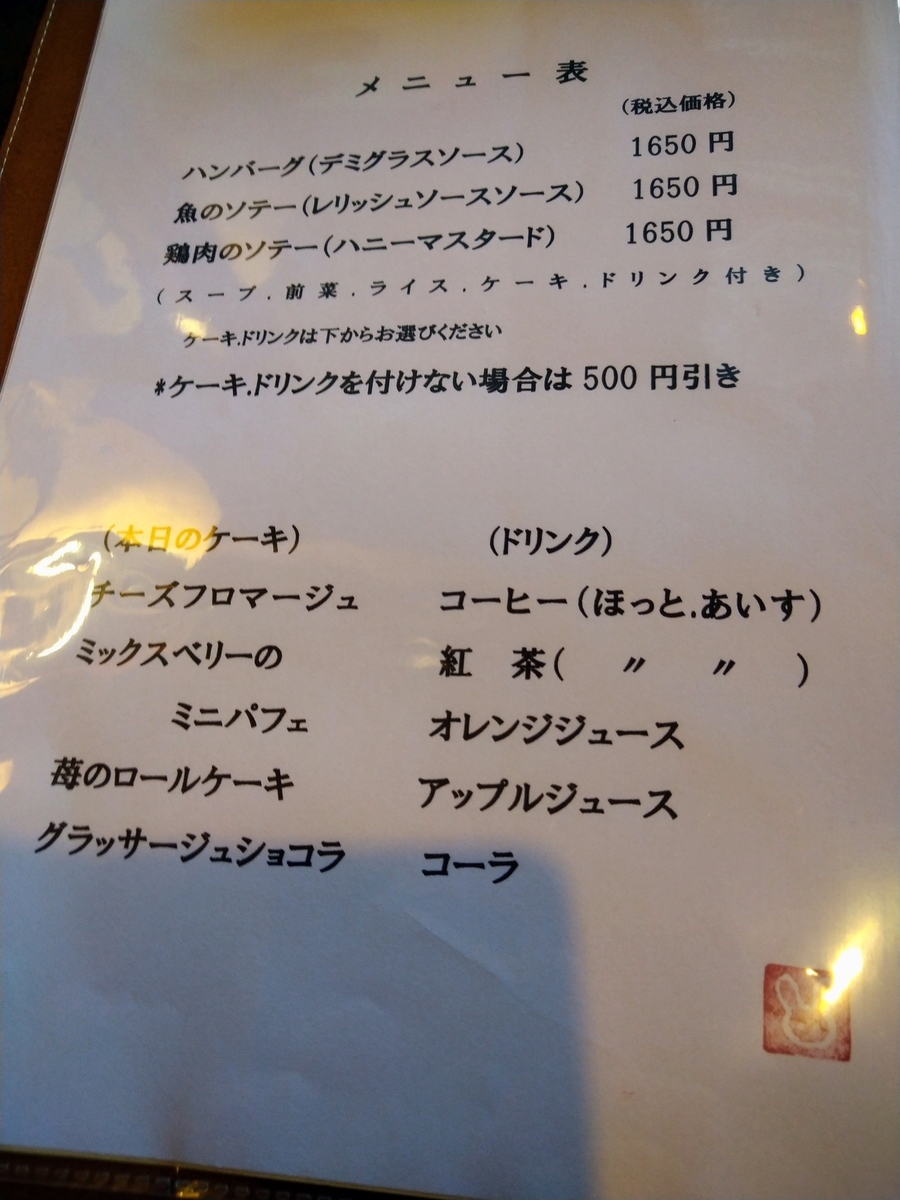 メニュー表
（税込価格）
ハンバーグ（デミグラスソース） 1650 円
魚のソテー（レリッシュソースソース） 1650 円
鶏肉のソテー（ハニーマスタード） 1650 円
（スープ.前菜.ライス.ケーキ.ドリンク付き）
ケーキ.ドリンクは下からお選びください
*ケーキ.ドリンクを付けない場合は 500 円引き
（本日のケーキ）
チーズフロマージュ
ミックスベリーの
ミニパフェ
苺のロールケーキ
グラッサージュショコラ
（ドリンク）
コーヒー（ほっと.あいす）
紅　茶（　〃　〃　）
オレンジジュース
アップルジュース
コーラ